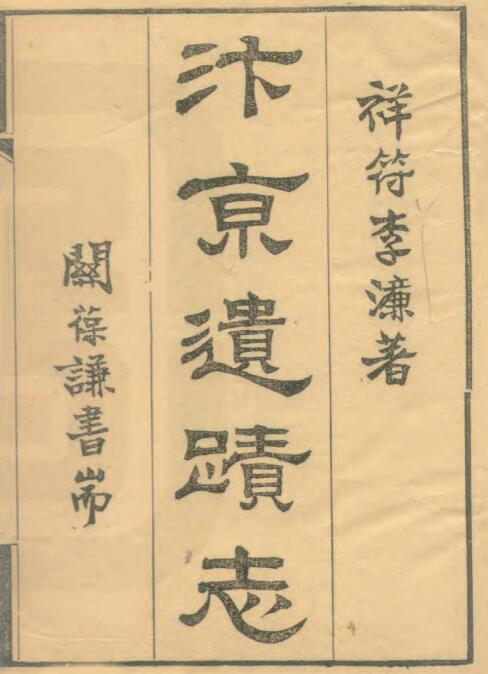 祥符李濂著
汴京遺蹟志
關葆謙書耑